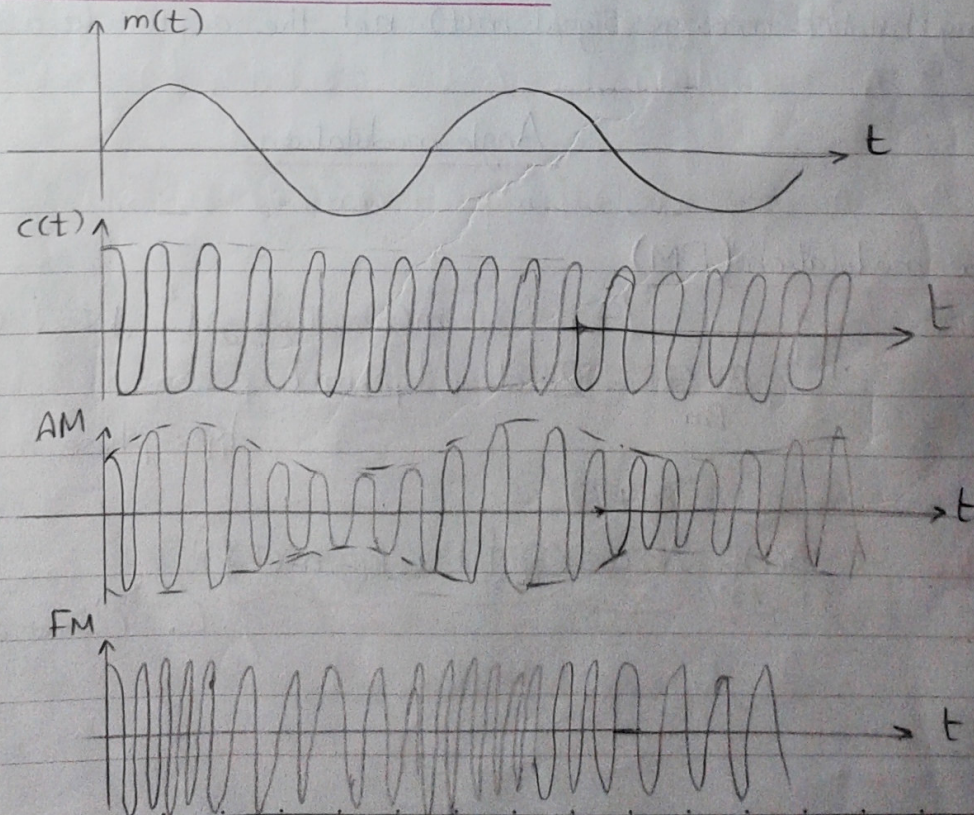 m(t)
t
c(t)
t
AM
t
FM
t